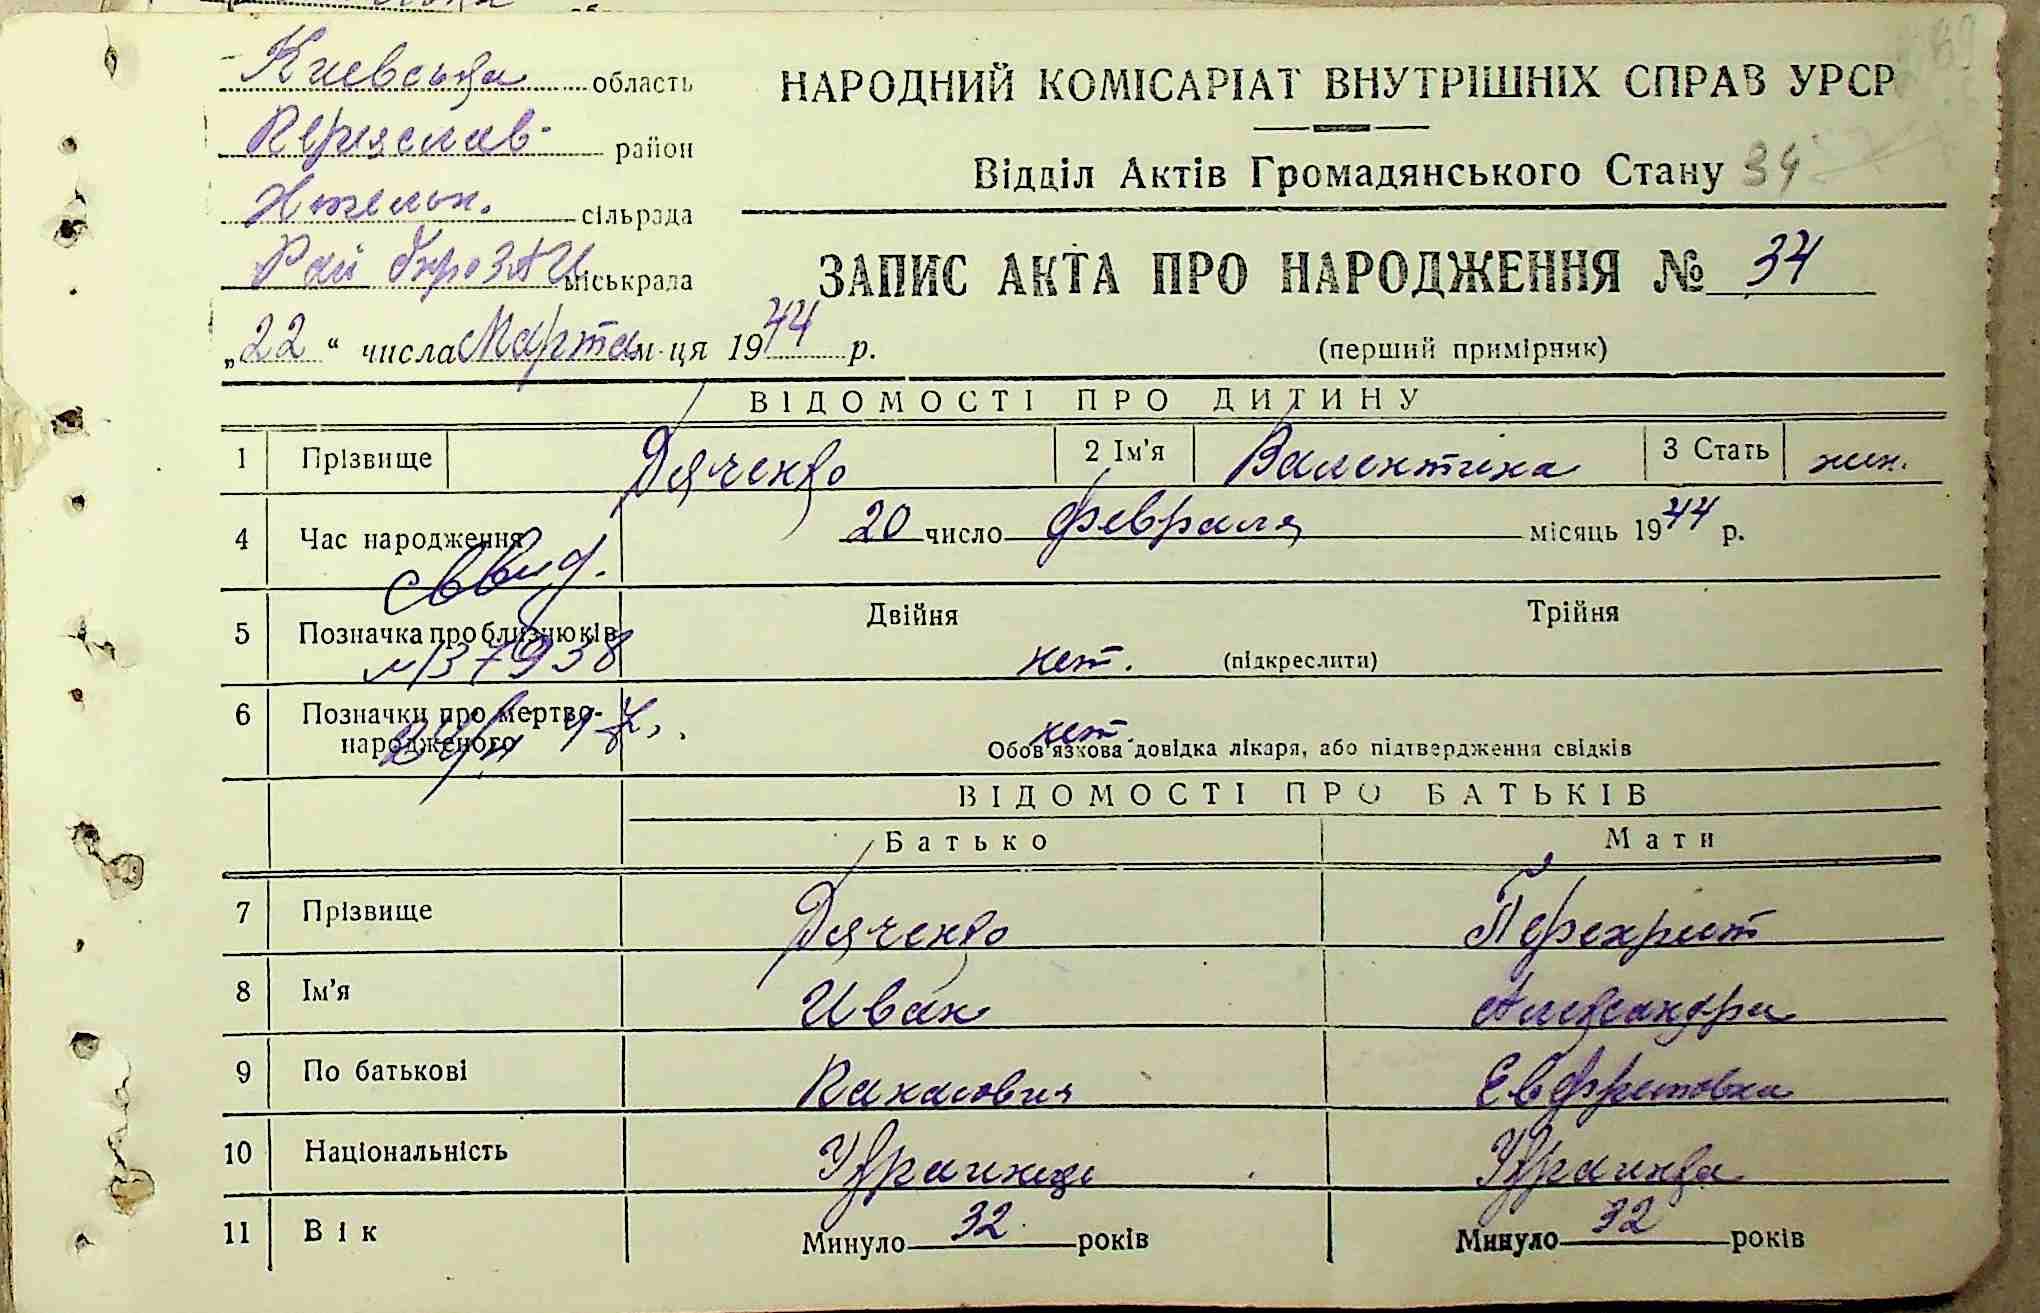 Киевська область
НАРОДНИЙ КОМІСАРІАТ ВНУТРІШНІХ СПРАВ УРСР
Переяслав- район
Відділ Актів Громадянського Стану 34
сільрада
Рай бюро ЗАГС міськрада
ЗАПИС АКТА ПРО НАРОДЖЕННЯ № 34
„22“ числа Марта м-ця 1944 р.
(перший примірник)
ВІДОМОСТІ ПРО ДИТИНУ
1 Прізвище Дяченко 2 Ім'я Валентина 3 Стать жен.
4 Час народження 20 число февраля місяць 1944 р.
Свид.
5 Позначка про близнюків Двійня Трійня
нет. (підкреслити)
137938
6 Позначки про мертво-народженого нет.
Обов'язкова довідка лікаря, або підтвердження свідків
ВІДОМОСТІ ПРО БАТЬКІВ
Батько Мати
7 Прізвище Дяченко Перехрист
8 Ім'я Иван Александра
9 По батькові Евфратовна
10 Національність Украинець Украинка
11 Вік Минуло 32 років Минуло 32 років